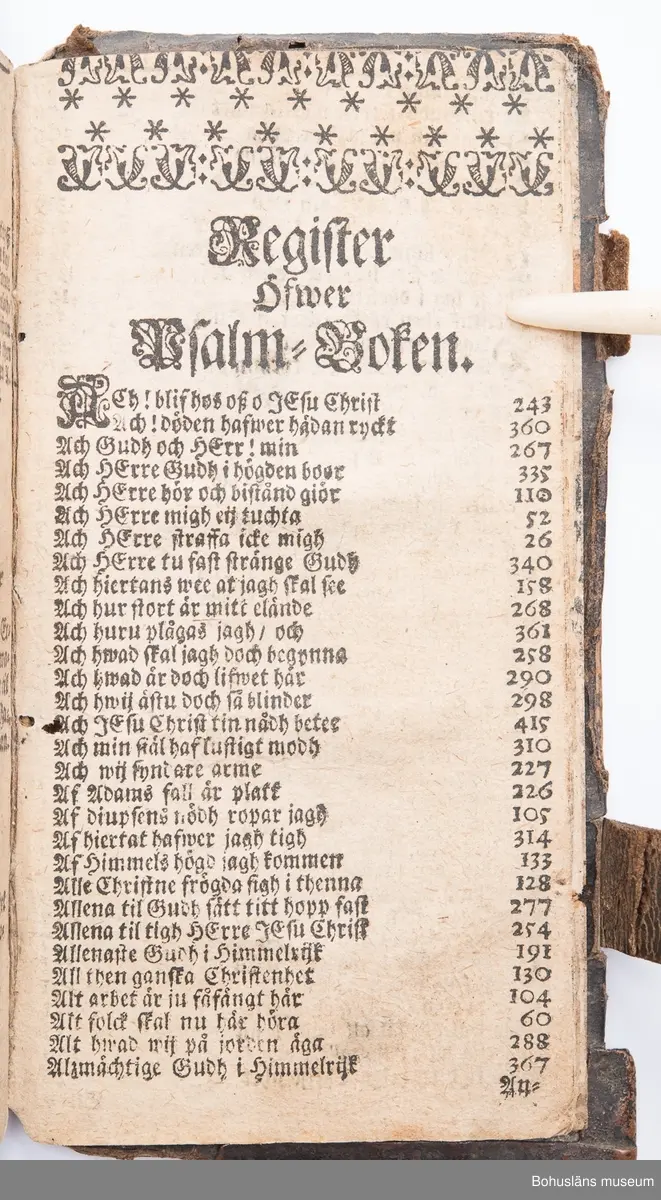 Register
Öfwer
Psalm-Boken.
ACh! blif hos oß o JEsu Christ 243
Ach! döden hafwer hådan ryckt 360
Ach Gudh och HErr! min 267
Ach HErre Gudh i högden boor 335
Ach HErre hör och bistånd giör 110
Ach HErre migh eij tuchta 52
Ach HErre straffa icke migh 26
Ach HErre tu fast stränge Gudh 340
Ach hiertans wee at jagh skal see 158
Ach hur stort är mitt elände 268
Ach huru plågas jagh / och 361
Ach hwad skal jagh doch begynna 258
Ach hwad är doch lifwet här 290
Ach hwij ästu doch så blinder 298
Ach JEsu Christ tin nådh betee 415
Ach min siäl haf lustigt modh 310
Ach wij syndare arme 227
Af Adams fall är platt 226
Af diupsens nödh ropar jagh 105
Af hiertat hafwer jagh tigh 314
Af Himmels högd jagh kommen 133
Alle Christne frögda sigh i thenna 128
Allena til Gudh sätt titt hopp fast 277
Allena til tigh HErre JEsu Christ 254
Allenaste Gudh i Himmelrijk 191
All then ganska Christenhet 130
Alt arbet är ju fåfängt här 104
Alt folck skal nu här höra 60
Alt hwad wij på jorden äga 288
Alzmächtige Gudh i Himmelrijk 367
An-
Bohusläns museum